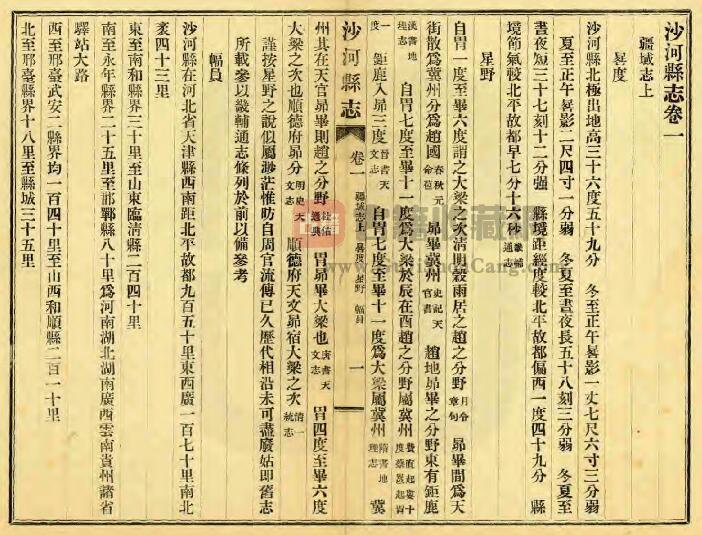 沙河縣志卷一
疆域志上
晷度
沙河縣北極出地高三十六度五十九分　冬至正午晷影一丈七尺六寸三分弱
夏至正午晷影二尺四寸一分弱　冬夏至晝夜長五十八刻三分弱　冬夏至
晝夜短三十七刻十二分强　縣境距經度較北平故都偏西一度四十九分　縣
境節氣較北平故都早七分十六秒畿輔通志
星野
自胃一度至畢六度謂之大梁之次清明穀雨居之趙之分野月令章句　昴畢間爲天
街散爲冀州分爲趙國春秋元命苞　昴畢冀州史記天官書　趙地昴畢之分野東有鉅鹿
漢書地理志　自胃七度至畢十一度爲大梁於辰在酉趙之分野屬冀州費直起婁十度蔡邕起胃
一度　鉅鹿入昴三度晉書天文志　自胃七度至畢十一度爲大梁屬冀州隋書地理志　冀
沙河縣志
卷一　疆域志上　晷度　星野　幅員
一
州其在天官昴畢則趙之分野杜佑通典　胃昴畢大梁也唐書天文志　胃四度至畢六度
大梁之次也順德府昴分明史天文志　順德府天文昴宿大梁之次清一統志
謹按星野之說似屬渺茫惟昉自周官流傳已久歷代相沿未可盡廢姑即舊志
所載參以畿輔通志條列於前以備參考
幅員
沙河縣在河北省天津縣西南距北平故都九百五十里東西廣一百七十里南北
袤四十三里
東至南和縣界三十里至山東臨淸縣二百四十里
南至永年縣界二十五里至邯鄲縣八十里爲河南湖北湖南廣西雲南貴州諸省
驛站大路
西至邢臺武安二縣界均一百四十里至山西和順縣二百一十里
北至邢臺縣界十八里至縣城三十五里